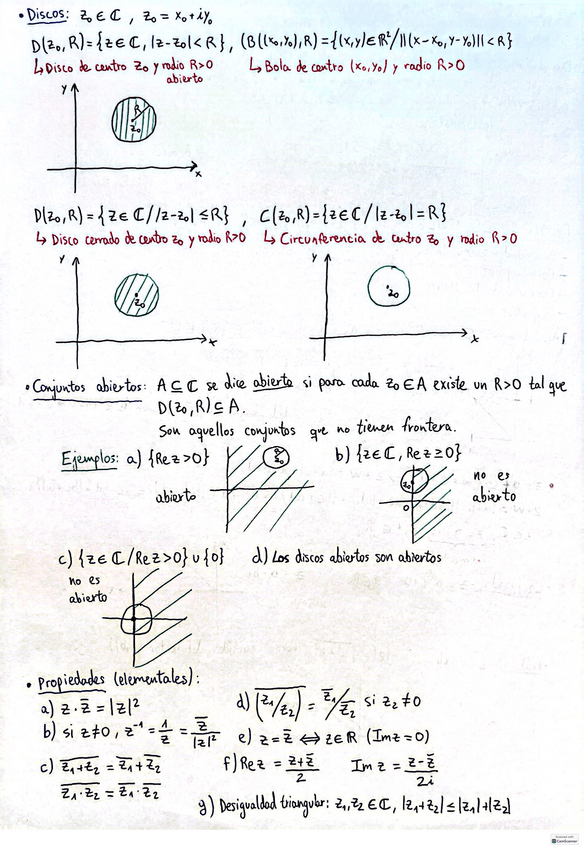 • Discos: z₀ ∈ ℂ, z₀ = x₀+iy₀
D(z₀,R) = {z ∈ ℂ, |z-z₀| < R}, (B((x₀,y₀),R) = {(x,y) ∈ ℝ² / ||(x-x₀, y-y₀)|| < R}
↳ Disco de centro z₀ y radio R>0 ↳ Bola de centro (x₀,y₀) y radio R>0
abierto
y
R
z₀
x
D(z₀,R) = {z ∈ ℂ / |z-z₀| ≤ R}, C(z₀,R) = {z ∈ ℂ / |z-z₀| = R}
↳ Disco cerrado de centro z₀ y radio R>0 ↳ Circunferencia de centro z₀ y radio R>0
y y
z₀ z₀
x x
• Conjuntos abiertos: A ⊆ ℂ se dice abierto si para cada z₀ ∈ A existe un R>0 tal que
D(z₀,R) ⊆ A.
Son aquellos conjuntos que no tienen frontera.
Ejemplos: a) {Re z > 0} b) {z ∈ ℂ, Re z ≥ 0}
z₀ z₀ no es
abierto 0 abierto
c) {z ∈ ℂ / Re z > 0} ∪ {0} d) Los discos abiertos son abiertos
no es
abierto
• Propiedades (elementales):
a) z · z̅ = |z|² d) \overline{(z₁/z₂)} = z̅₁/z̅₂ si z₂ ≠ 0
b) si z ≠ 0, z⁻¹ = 1/z = z̅/|z|² e) z = z̅ ⟺ z ∈ ℝ (Im z = 0)
c) \overline{z₁+z₂} = \overline{z₁}+\overline{z₂} f) Re z = (z+z̅)/2 Im z = (z-z̅)/2i
\overline{z₁·z₂} = \overline{z₁}·\overline{z₂}
g) Desigualdad triangular: z₁,z₂ ∈ ℂ, |z₁+z₂| ≤ |z₁|+|z₂|
CamScanner